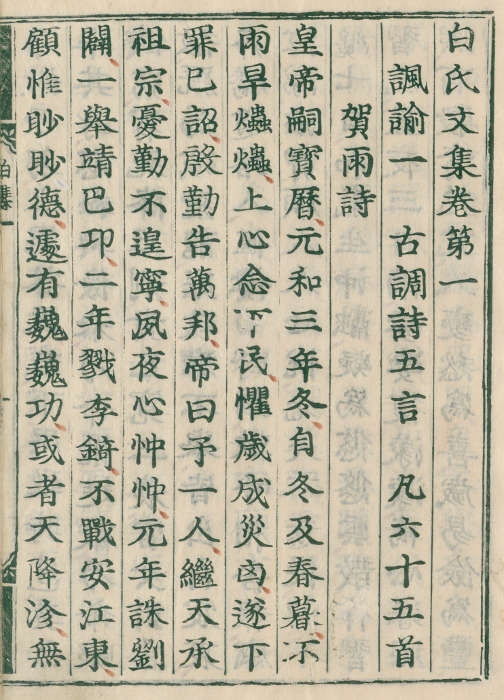 白氏文集卷第一
諷諭一 古調詩五言 凡六十五首
賀雨詩
皇帝嗣寶曆元和三年冬自冬及春暮不
雨旱爞爞上心念下民懼歲成災凶遂下
罪已詔殷勤告萬邦帝曰予一人繼天承
祖宗憂勤不遑寧夙夜心忡忡元年誅劉
闢一舉靖巴卭二年戮李錡不戰安江東
顧惟眇眇德遽有巍巍功或者天降沴無